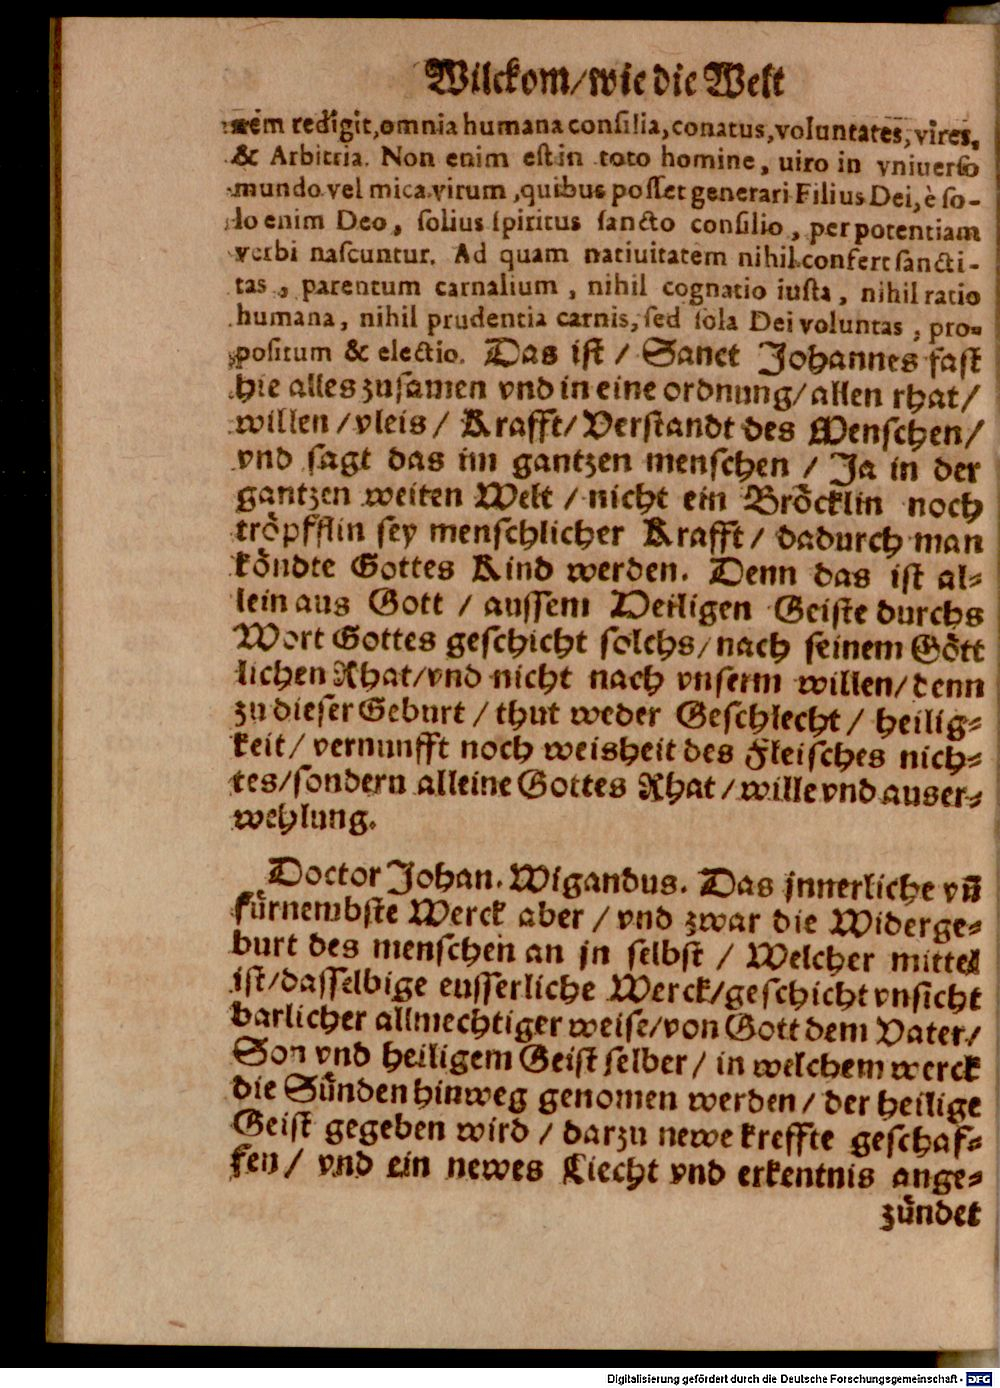 Wilckom/wie die Welt
nem redigit,omnia humana consilia,conatus,voluntates,vires,
& Arbitria. Non enim est in toto homine, uiro in vniuerso
mundo vel mica virum,quibus posset generari Filius Dei,è so-
lo enim Deo, solius spiritus sancto consilio, per potentiam
verbi nascuntur. Ad quam natiuitatem nihil confert sancti-
tas, parentum carnalium, nihil cognatio iusta, nihil ratio
humana, nihil prudentia carnis, sed sola Dei voluntas, pro-
positum & electio. Das ist / Sanct Johannes fast
hie alles zusamen vnd in eine ordnung/ allen rhat/
willen/vleis/ Krafft/ Verstandt des Menschen/
vnd sagt das im gantzen menschen / Ja in der
gantzen weiten Welt / nicht ein Bröcklin noch
tröpfflin sey menschlicher Krafft/ dadurch man
köndte Gottes Kind werden. Denn das ist al-
lein aus Gott / aussem Heiligen Geiste durchs
Wort Gottes geschicht solchs/ nach seinem Gött
lichen Rhat/vnd nicht nach vnserm willen/ denn
zu dieser Geburt / thut weder Geschlecht / heilig-
keit/ vernunfft noch weisheit des Fleisches nich-
tes/sondern alleine Gottes Rhat/ wille vnd auser-
wehlung.
Doctor Johan. Wigandus. Das jnnerliche vñ
fürnembste Werck aber / vnd zwar die Widerge-
burt des menschen an jn selbst / Welcher mittel
ist/dasselbige eusserliche Werck/geschicht vnsicht
barlicher allmechtiger weise/von Gott dem Vater/
Son vnd heiligem Geist selber/ in welchem werck
die Sünden hinweg genomen werden/ der heilige
Geist gegeben wird / darzu newe kreffte geschaf-
fen/ vnd ein newes Liecht vnd erkentnis ange-
zündet
Digitalisierung gefördert durch die Deutsche Forschungsgemeinschaft - DFG